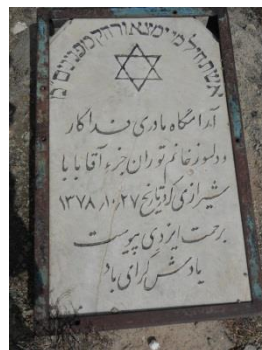 אשת חיל מי ימצא ורחק מפנינים מ
آرامگاه مادری فداکار
و دلسوز خانم توران جزء آقابابا
شیرازی که در تاریخ ۱۳۷۸،۱۰،۲۷
برحمت ایزدی پیوست
یادش گرامی باد